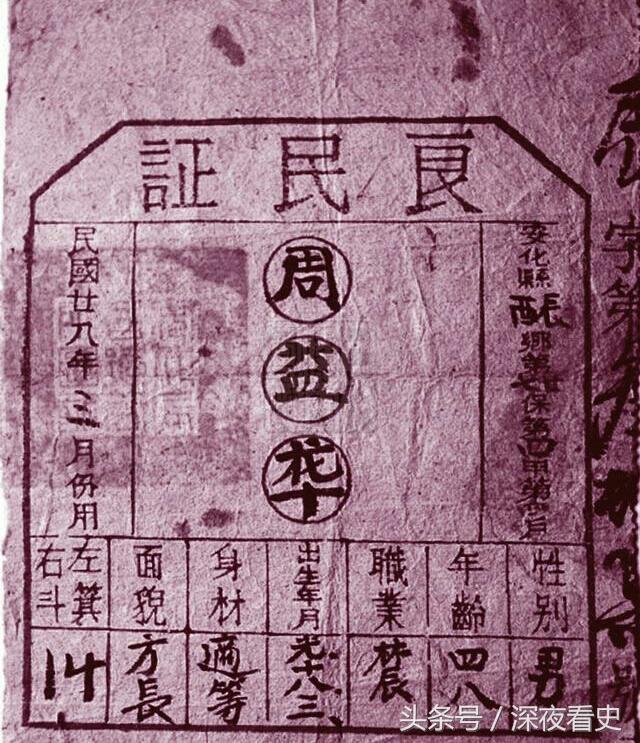 字第
良民証
安化縣
鄉第 保第四甲第 户
周益
民國廿九年三月份用
性別 男
年齡 四八
職業
出生年月 光十八三
身材 適等
面貌 方長
左箕右斗 14
头条号 / 深夜看史